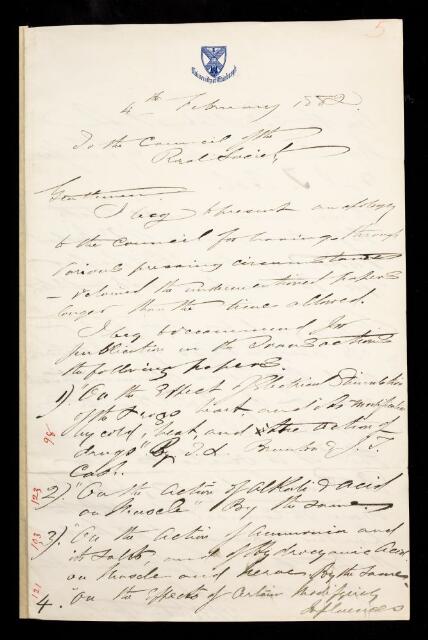 5
University of Edinburgh
4th February 1882.
To the Council of the
Royal Society
Gentlemen.
I beg to present an apology
to the Council for having through
various pressing circumstances
- retained the undermentioned papers
longer than the time allowed.
I beg to recommend for
publication in the Transactions
the following papers.
1) "On the Effect of Electrical Stimulation
of the Frog's heart, and its modification
by cold, heat, and the action of
drugs" By T. L. Brunton & J. T.
Cash.
98
2) "On the action of alkali & acid
on muscle" By the same.
123
3) "On the Action of Ammonia and
its salts, and of Hydrocyanic Acid
on Muscle and nerve. By the same"
193
4. "On the Effects of certain modifying
influences
121